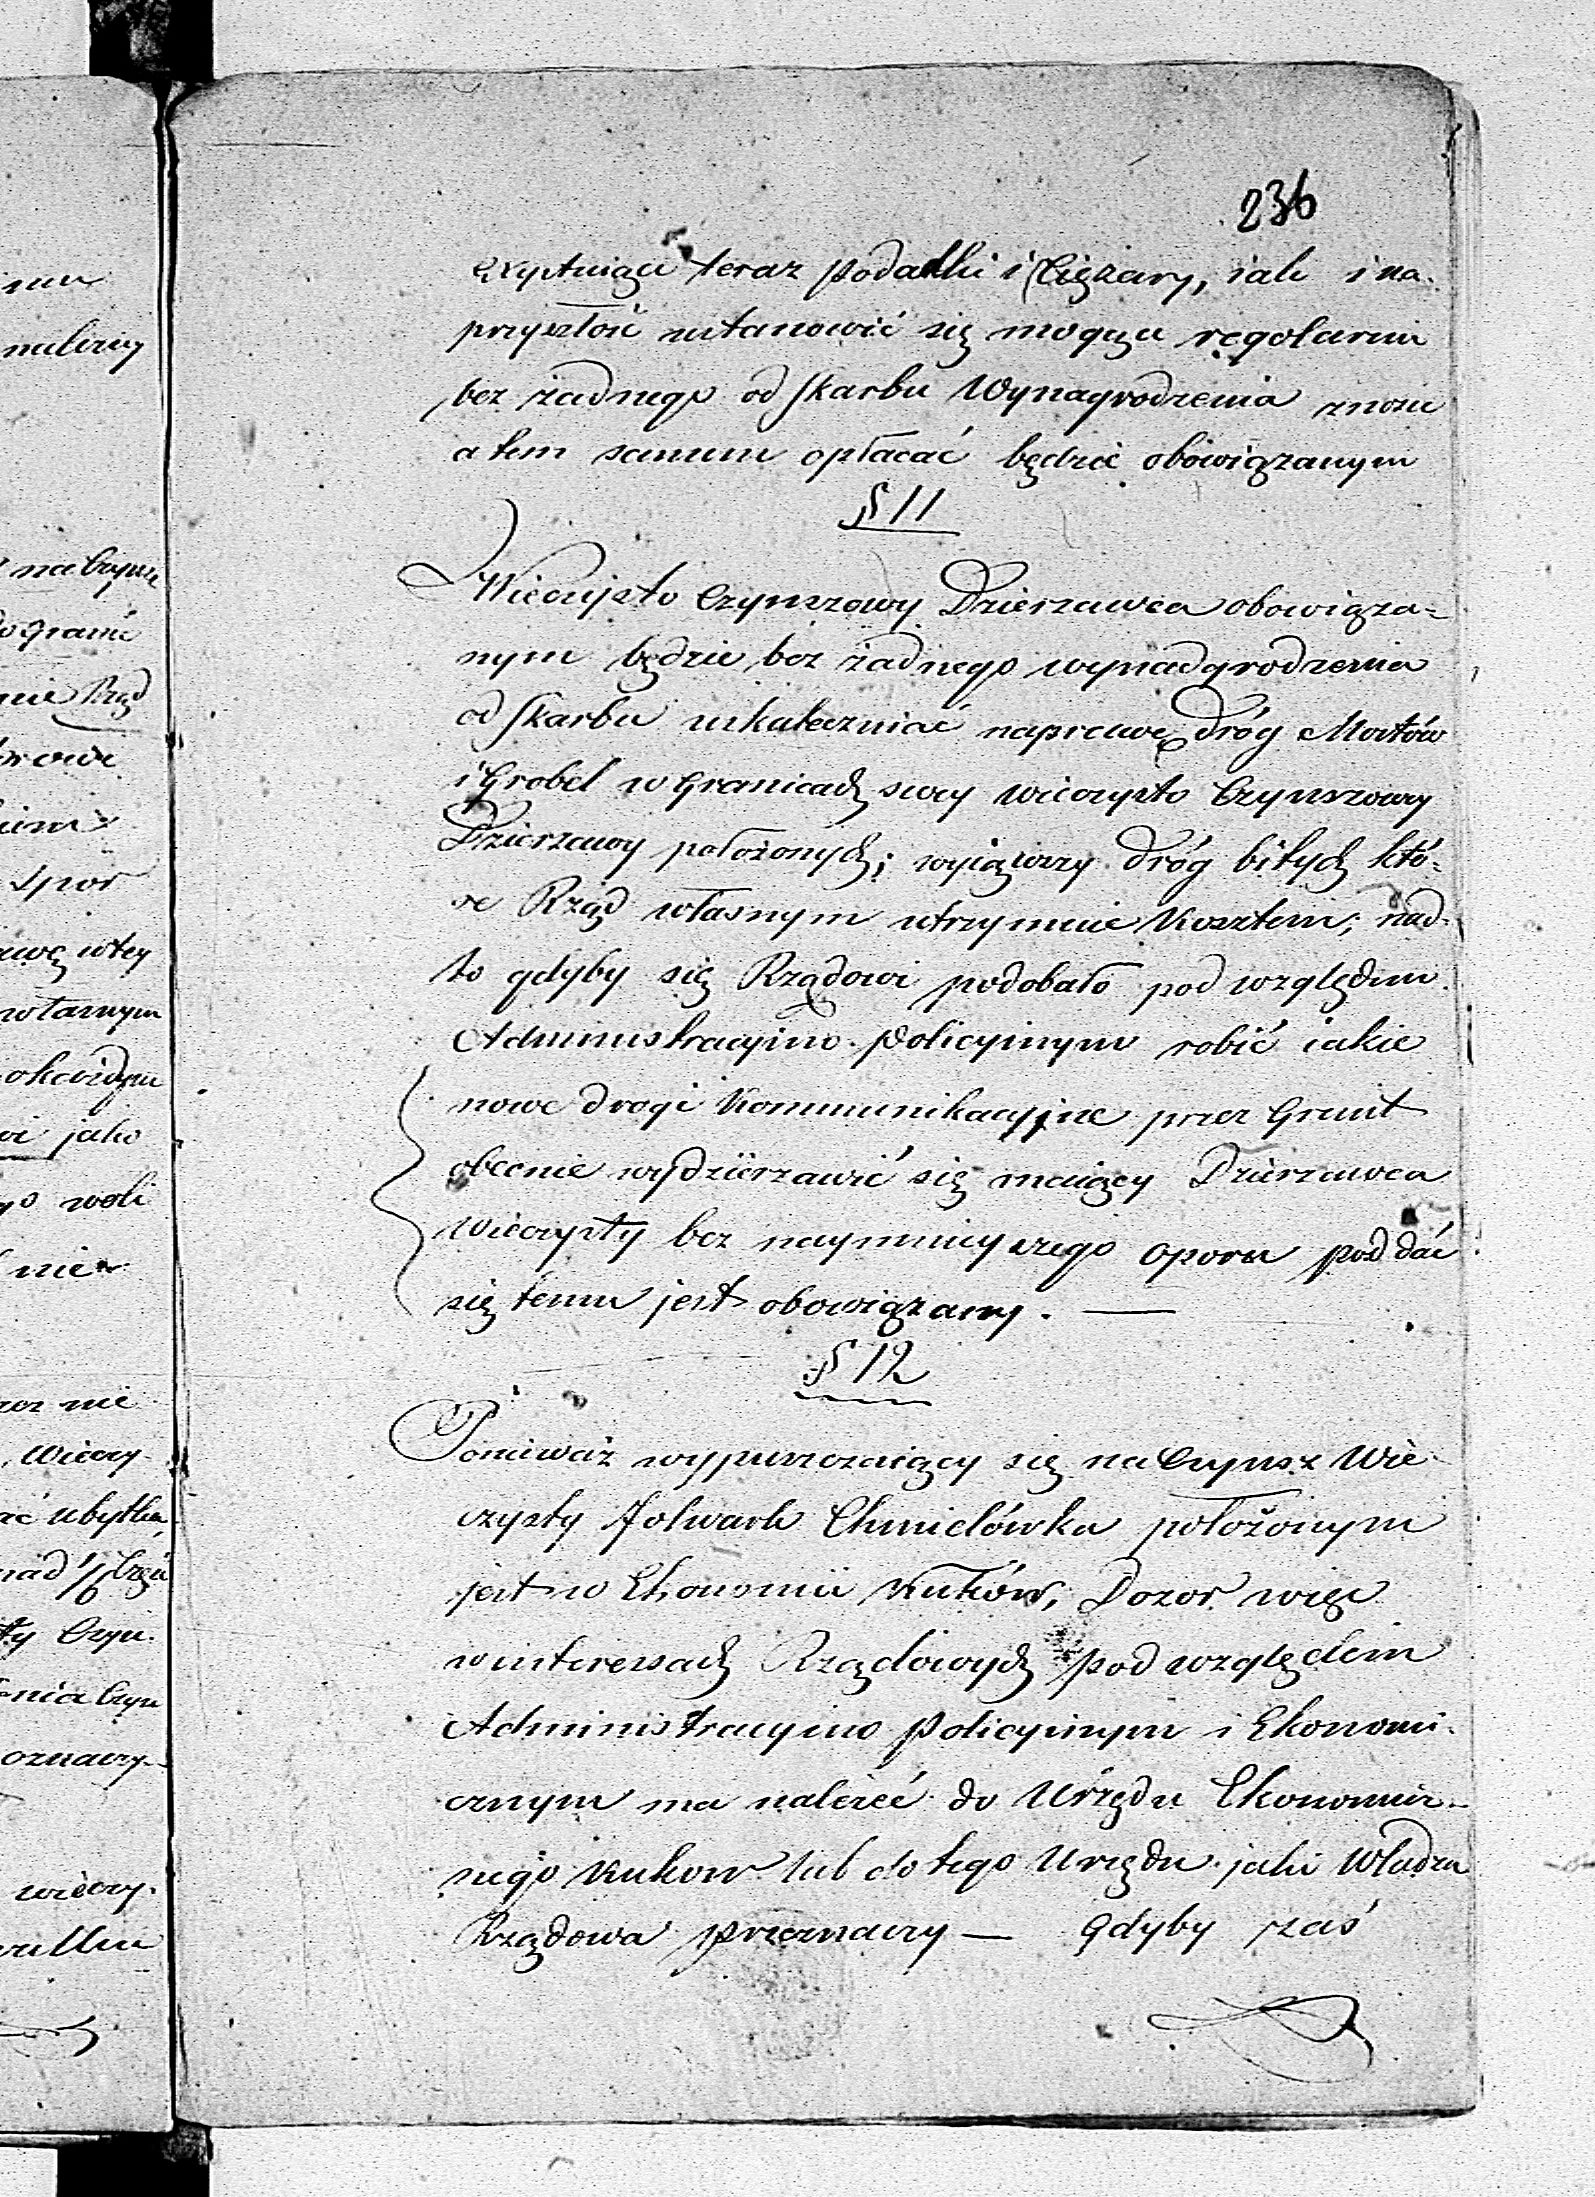 236
exystuiące teraz podatki i Ciężary, iak i na-
przyszłość ustanowić się mogące regularnie
bez żadnego od Skarbu Wynagrodzenia znosić
a tem samem opłacać będzie obowiązanym
§ 11
Wieczysto Czynszowy Dzierzawca obowiąza-
nym będzie bez żadnego wynadgrodzenia
od Skarbu uskuteczniać naprawę dróg Mostów
i Grobel w Granicach swey wieczysto Czynszowey
Dzierzawy położonych; wyiąwszy dróg bitych któ-
re Rząd własnym utrzymuie Kosztem; nad-
to gdyby się Rządowi podobało pod względem
Administracyino-Policyinym robić iakie
nowe drogi Kommunikacyjne przez Grunt
obecnie wydzierzawić się maiący Dzierzawca
Wieczysty bez naymnieyszego oporu poddać
się temu jest obowiązany. —
§ 12
Ponieważ wypuszczaiący się na Czynsz Wie-
czysty Folwark Chmielówka położonym
jest w Ekonomii Kuków, Dozór więc
w interessach Rządowych pod względem
Administracyino Policyinym i Ekonomi-
cznym ma należeć do Urzędu Ekonomicz-
nego Kukow lub do tego Urzędu jaki Władza
Rządowa przeznaczy — Gdyby zaś
na Czynsz
Rząd
Spór
własnym
jako
woli
nie
Wieczy-
nad 1/6 Częś
wieczy-